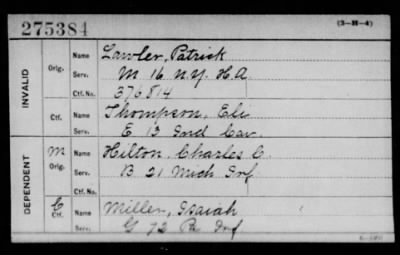 275384
(3-H-4)
INVALID
Orig. Name Lawler, Patrick
Serv. M 16 N.Y. H.A.
Ctf. No. 376814
Ctf. Name Thompson, Eli
Serv. E 13 Ind Cav.
DEPENDENT
M Orig. Name Hilton, Charles C.
Serv. B 21 Mich Inf
Ctf. No.
C Ctf. Name Miller, Isaiah
Serv. G 72 Pa Inf